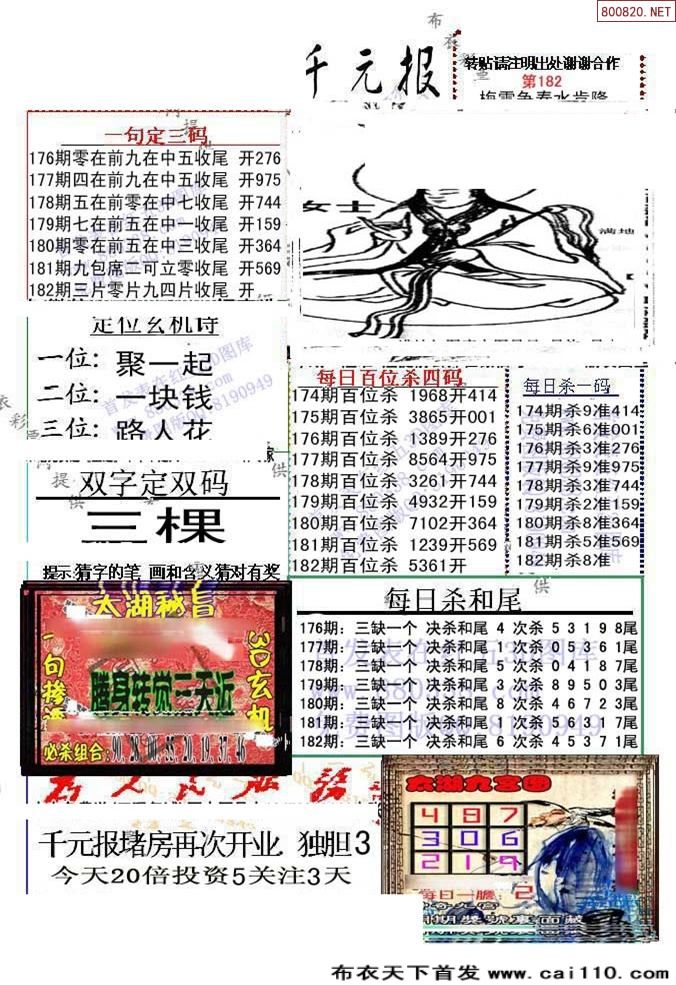 800820.NET
千元报
转贴请注明出处谢谢合作
第182
一句定三码
176期零在前九在中五收尾 开276
177期四在前九在中五收尾 开975
178期五在前零在中七收尾 开744
179期七在前五在中一收尾 开159
180期零在前五在中三收尾 开364
181期九包席二可立零收尾 开569
182期三片零片九四片收尾 开
女士
满地
定位玄机诗
一位: 聚一起
二位: 一块钱
三位: 路人花
双字定双码
三棵
提示:猜字的笔 画和含义猜对有奖
每日百位杀四码
174期百位杀 1968开414
175期百位杀 3865开001
176期百位杀 1389开276
177期百位杀 8564开975
178期百位杀 3261开744
179期百位杀 4932开159
180期百位杀 7102开364
181期百位杀 1239开569
182期百位杀 5361开
每日杀一码
174期杀9准414
175期杀6准001
176期杀3准276
177期杀9准975
178期杀3准744
179期杀2准159
180期杀8准364
181期杀5准569
182期杀8准
每日杀和尾
176期: 三缺一个 决杀和尾 4 次杀 5 3 1 9 8尾
177期: 三缺一个 决杀和尾 7 次杀 0 5 3 6 1尾
178期: 三缺一个 决杀和尾 5 次杀 0 4 1 8 7尾
179期: 三缺一个 决杀和尾 3 次杀 8 9 5 0 3尾
180期: 三缺一个 决杀和尾 8 次杀 4 6 7 2 3尾
181期: 三缺一个 决杀和尾 9 次杀 5 6 3 1 7尾
182期: 三缺一个 决杀和尾 6 次杀 4 5 3 7 1尾
太湖秘旨
3D玄机
腾身转觉三天近
必杀组合:90,78,00,35,20,19,37,46
千元报堵房再次开业 独胆3
今天20倍投资5关注3天
太湖九宫图
4 8 7
3 0 6
2 1 9
每日一胆: 2
布衣天下首发 www.cai110.com